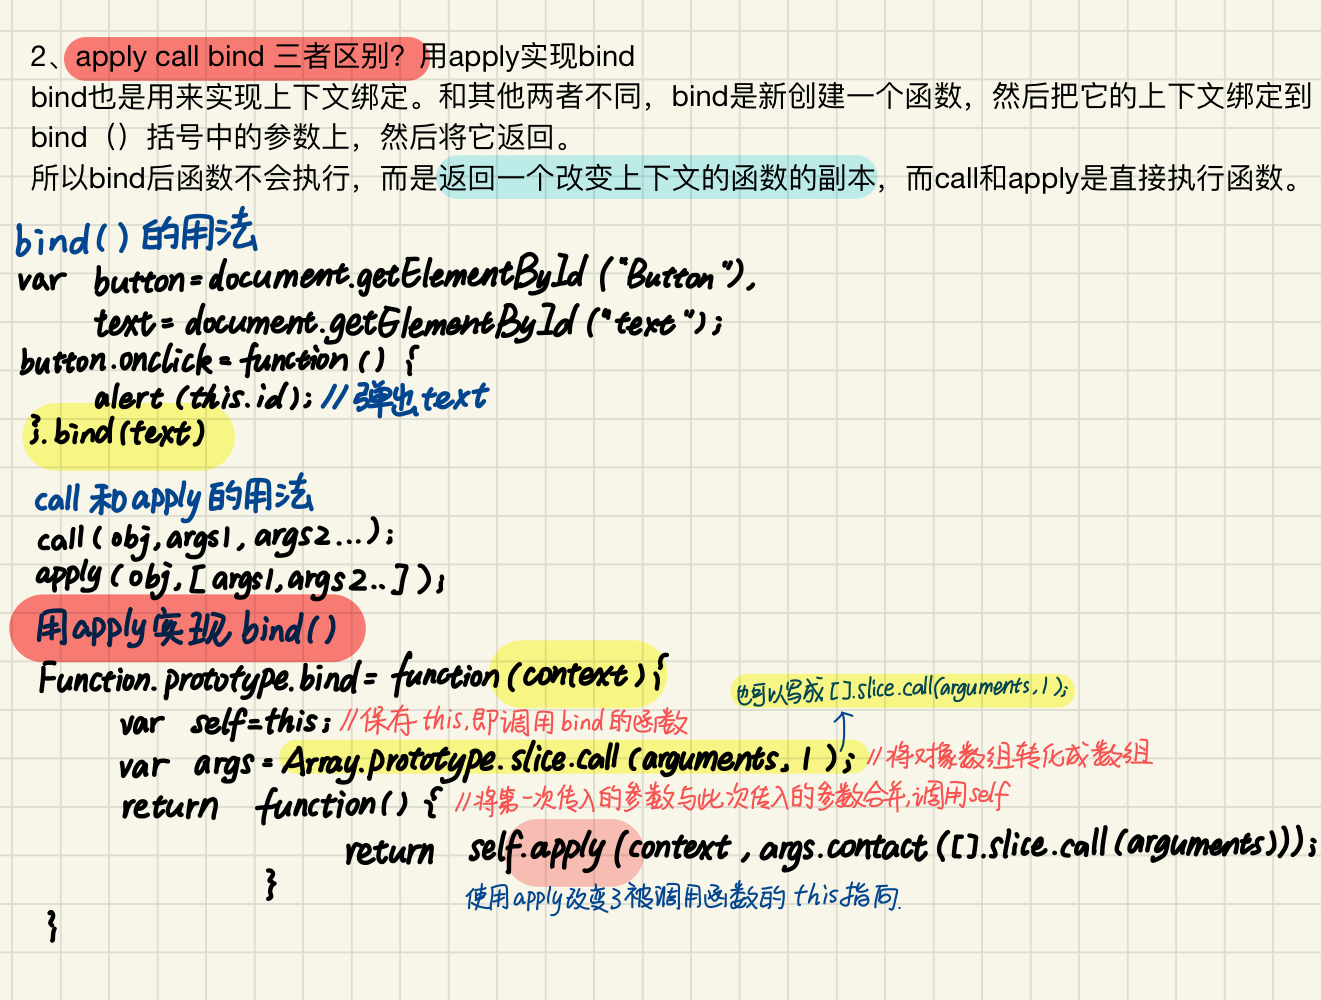 2、apply call bind 三者区别？用apply实现bind
bind也是用来实现上下文绑定。和其他两者不同，bind是新创建一个函数，然后把它的上下文绑定到
bind（）括号中的参数上，然后将它返回。
所以bind后函数不会执行，而是返回一个改变上下文的函数的副本，而call和apply是直接执行函数。
bind()的用法
var button=document.getElementById("Button"),
text=document.getElementById("text");
button.onclick=function() {
alert(this.id); //弹出text
}.bind(text)
call和apply的用法
call(obj,args1,args2...);
apply(obj,[args1,args2..]);
用apply实现bind()
Function.prototype.bind=function(context){
也可以写成[].slice.call(arguments,1);
var self=this; //保存this,即调用bind的函数
var args=Array.prototype.slice.call(arguments,1); //将对象数组转化成数组
return function() { //将第一次传入的参数与此次传入的参数合并,调用self
return self.apply(context,args.contact([].slice.call(arguments)));
}
使用apply改变了被调用函数的this指向.
}